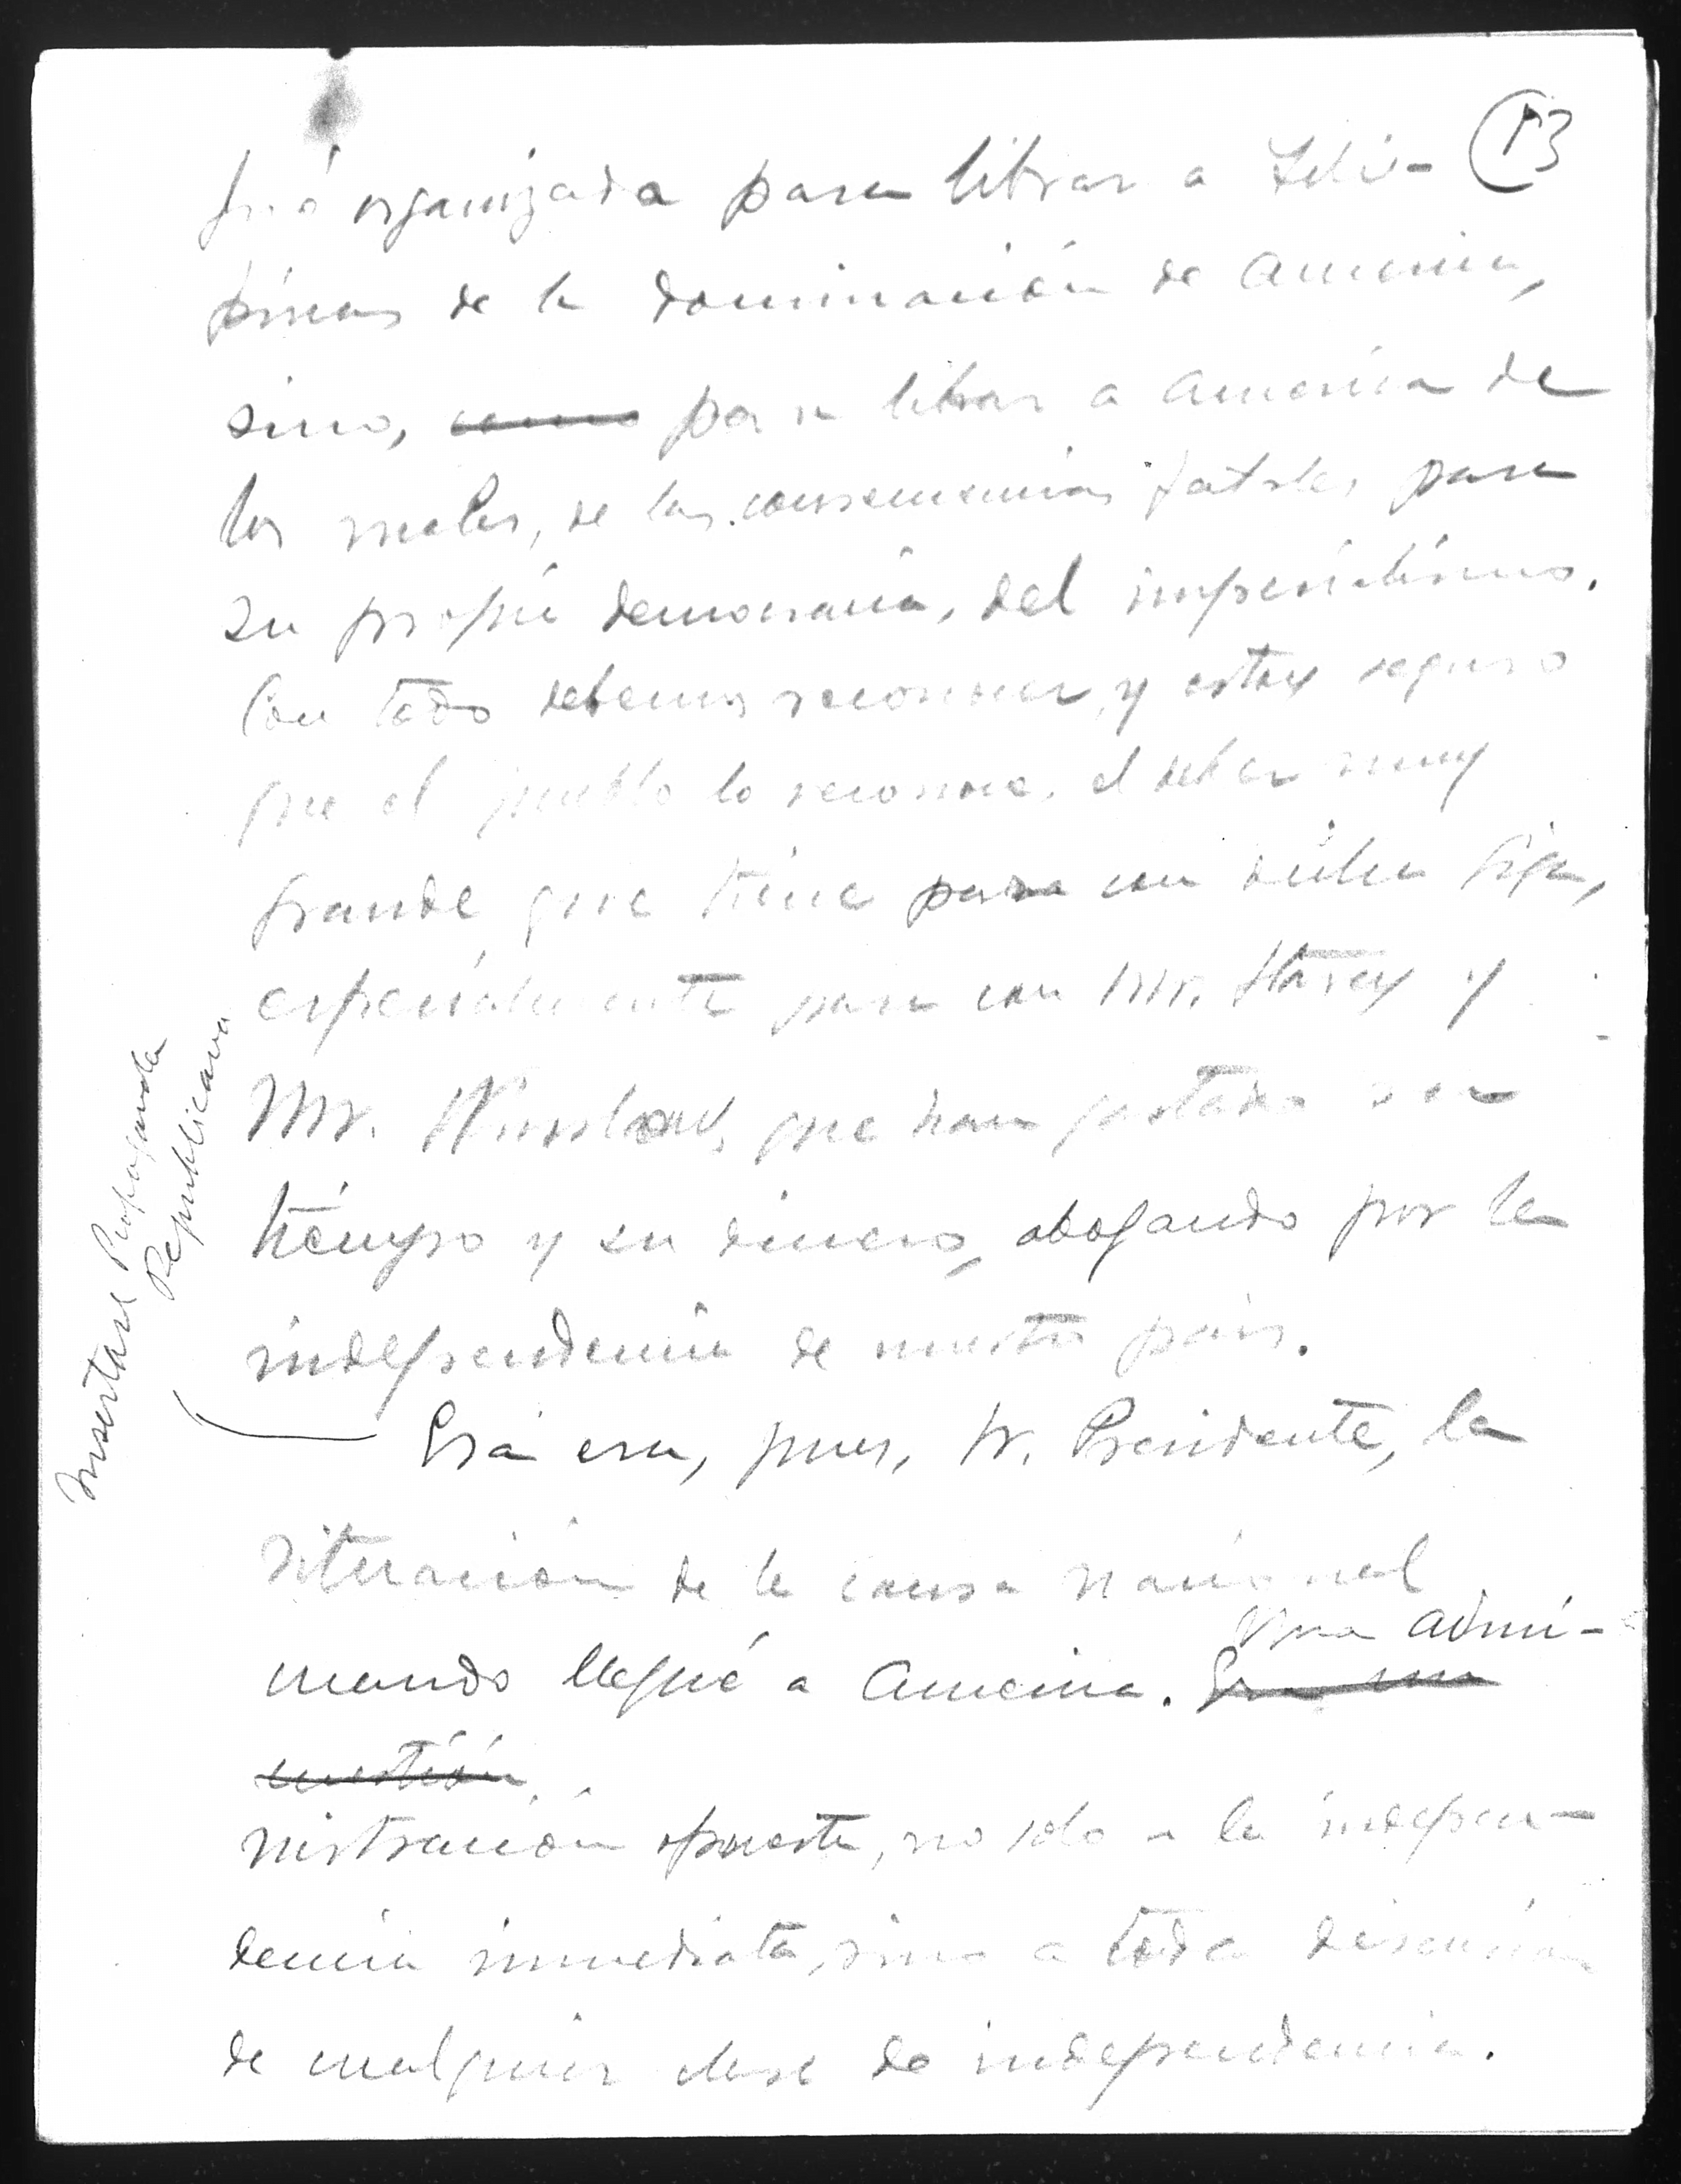 13
fué organizada para librar a Fili-
pinas de la dominación de America,
sino, como para librar a America de
los males, de las consecuencias fatales para
su propia democracia, del imperialismo.
Con todo debemos reconocer, y estoy seguro
que el pueblo lo reconoce, el deber muy
grande que tiene para con dicha Liga,
especialmente para con Mr. Storey y
Mr. Winslow, que han gastado su
tiempo y su dinero, abogando por la
independencia de nuestro pais.
Insertase Propaganda
Republicana
Esa era, pues, Sr. Presidente, la
situación de la causa nacional
cuando llegué a America. Era una
Una admi-
cuestión
nistración opuesta, no solo a la indepen-
dencia inmediata, sino a toda discusion
de cualquier clase de independencia.